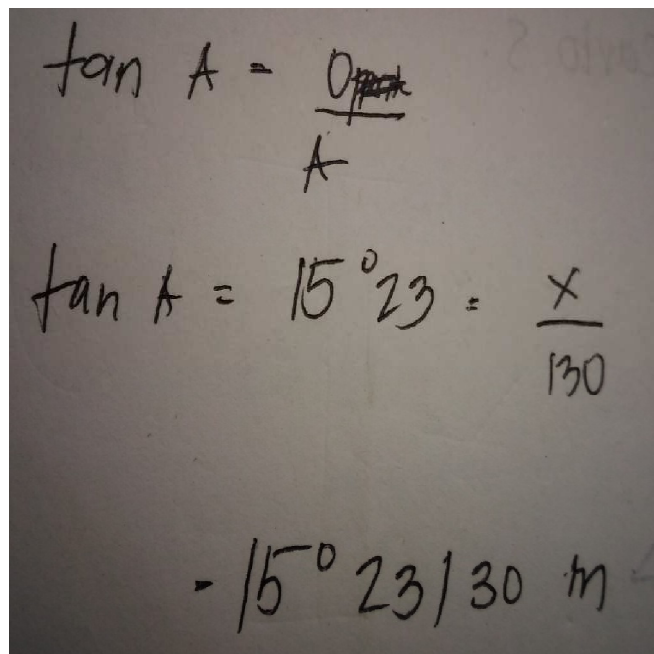 tan A = O
A
tan A = 15°23 = x
130
= 15° 23130 m